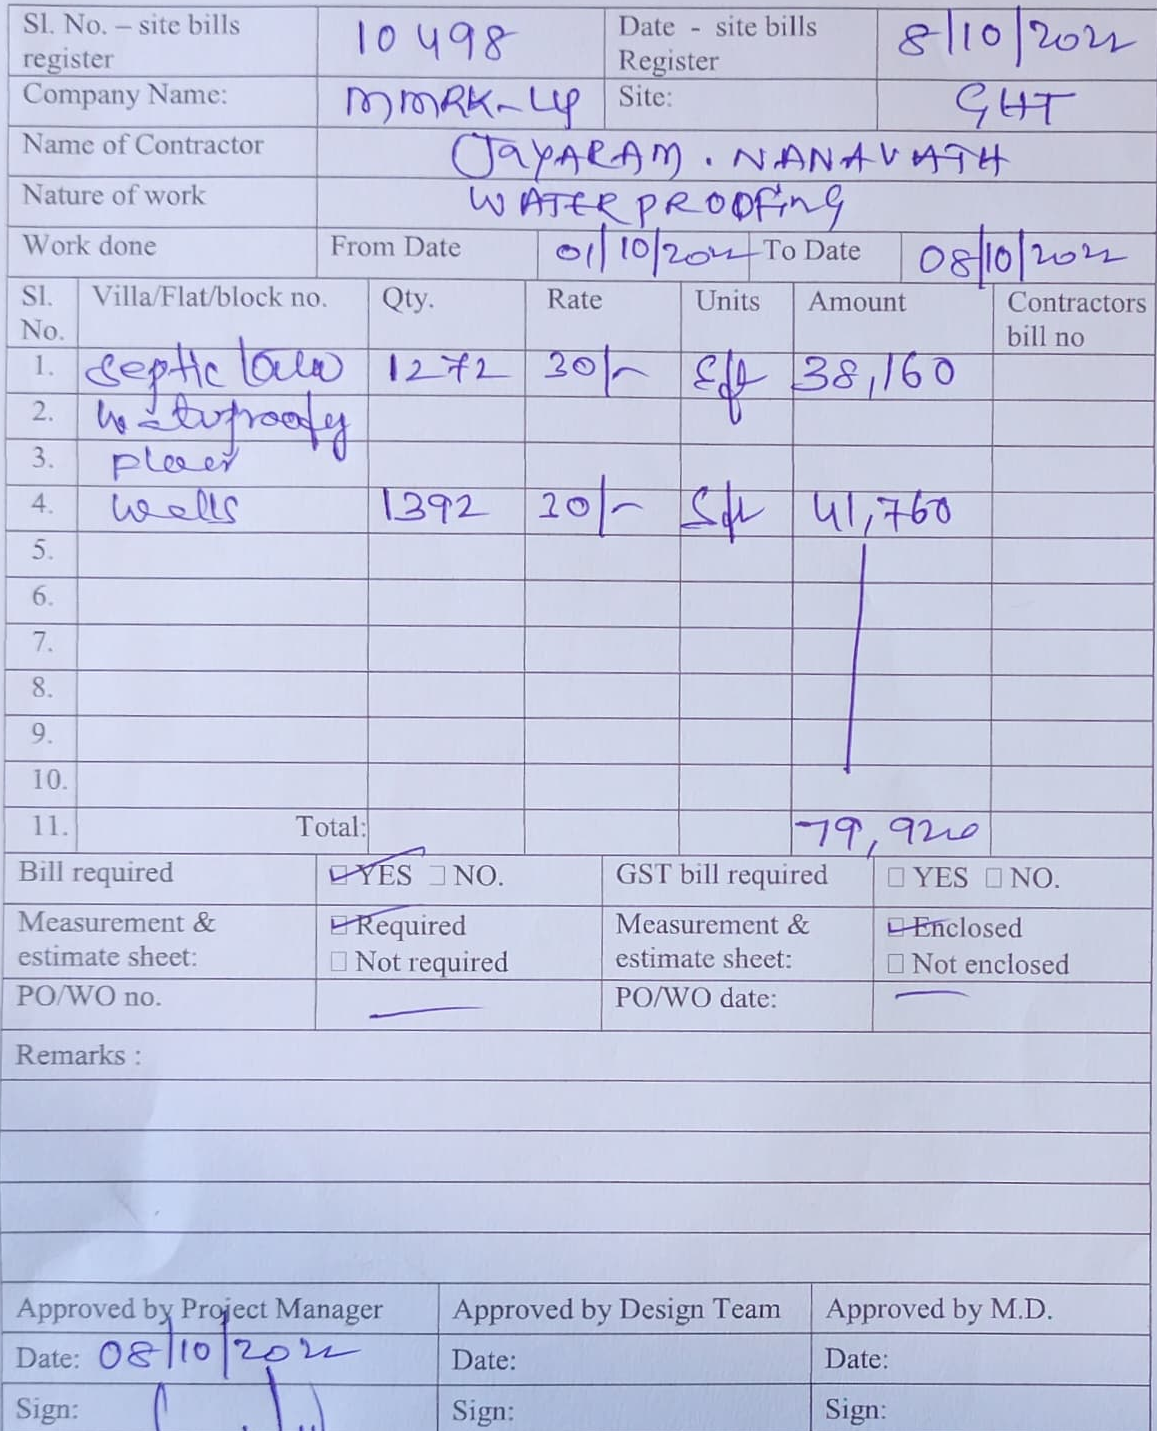 Sl. No. – site bills register 10498 Date - site bills Register 8/10/2022
Company Name: MMRK-LLP Site: GHT
Name of Contractor JAYARAM. NANAVATH
Nature of work WATERPROOFING
Work done From Date 01/10/2022 To Date 08/10/2022
Sl. No. Villa/Flat/block no. Qty. Rate Units Amount Contractors bill no
1. Septic 1272 30/- Sft 38,160
2.
3.
4. walls 1392 30/- Sft 41,760
5.
6.
7.
8.
9.
10.
11. Total: 79,920
Bill required YES NO. GST bill required YES NO.
Measurement & estimate sheet: Required Not required Measurement & estimate sheet: Enclosed Not enclosed
PO/WO no. — PO/WO date: —
Remarks :
Approved by Project Manager Approved by Design Team Approved by M.D.
Date: 08/10/2022 Date: Date:
Sign: Sign: Sign: